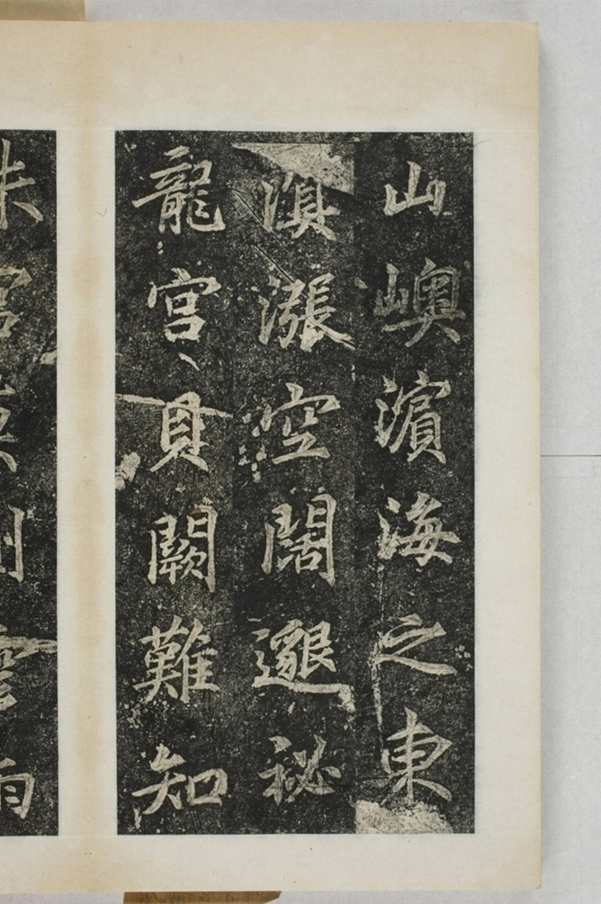 山嶼濱海之東
溟漲空闊邈秘
龍宮貝闕難知